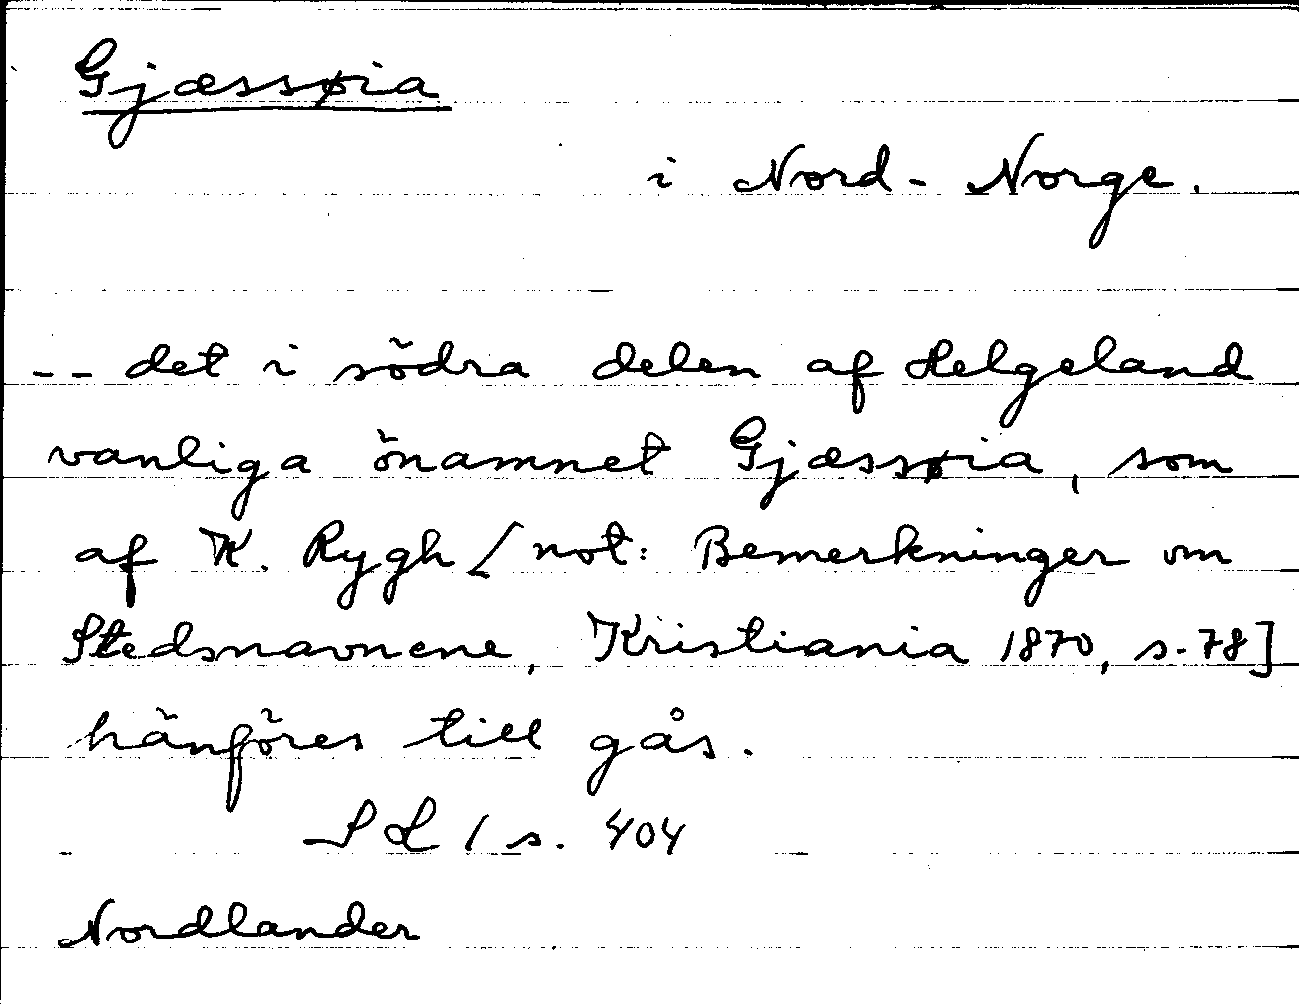 Gjæssøia
i Nord-Norge.
-- det i södra delen af Helgeland
vanliga önamnet Gjæssøia, som
af K. Rygh [not: Bemerkninger om
Stedsnavnene, Kristiania 1870, s. 78]
hänföres till gås.
SL 1 s. 404
Nordlander